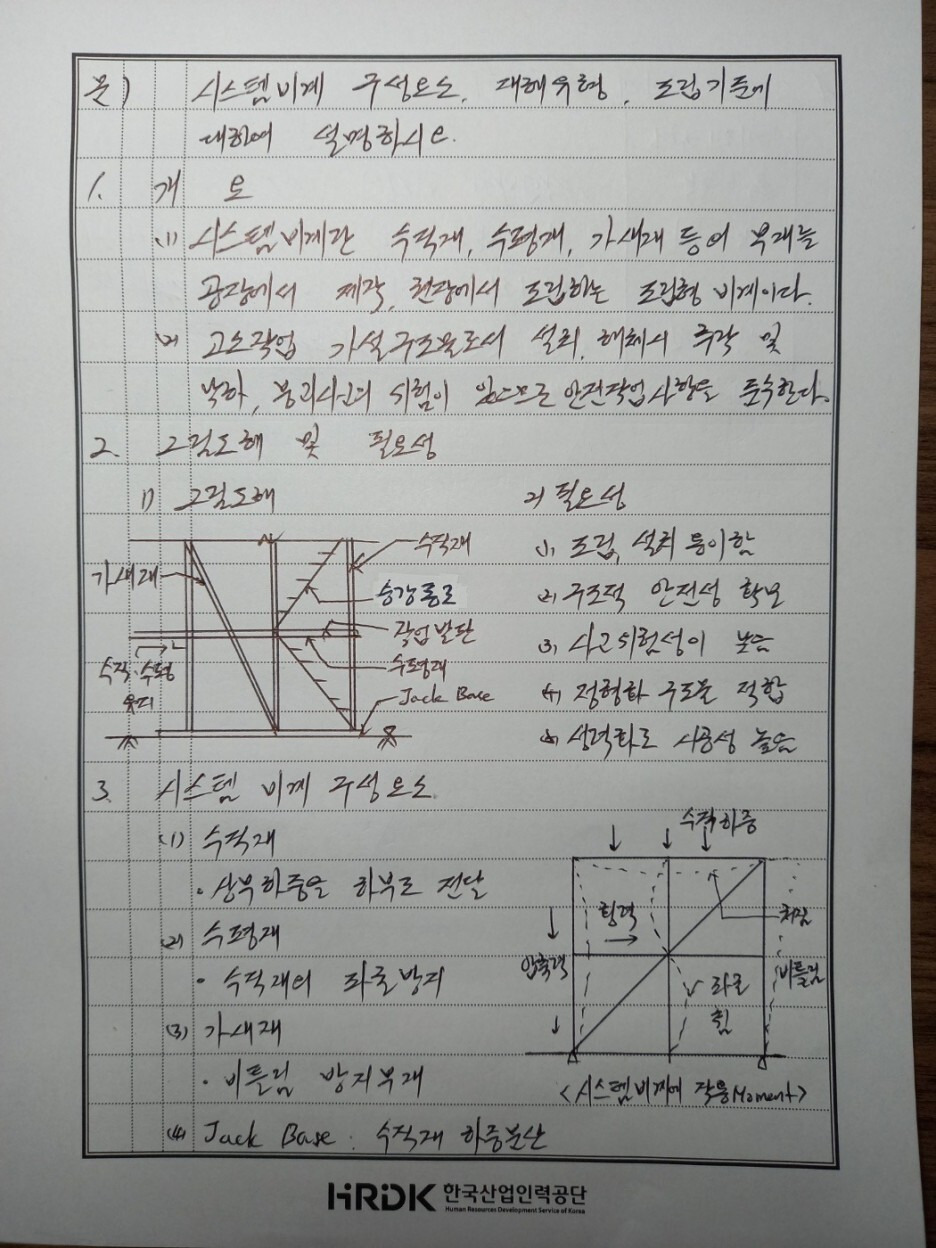 문) 시스템비계 구성요소, 재해유형, 조립기준에
대하여 설명하시오.
1. 개 요
(1) 시스템비계란 수직재, 수평재, 가새재 등의 부재를
공장에서 제작, 현장에서 조립하는 조립형 비계이다.
(2) 고소작업 가설구조물로서 설치, 해체시 추락 및
낙하, 붕괴사고의 위험이 있으므로 안전작업사항을 준수한다.
2. 그림도해 및 필요성
1) 그림도해
가새재
수직재
승강통로
작업발판
수평재
Jack Base
수직·수평
유지
2) 필요성
(1) 조립, 설치 용이함
(2) 구조적 안전성 확보
(3) 사고위험성이 높음
(4) 정형화 구조물 적합
(5) 생력화로 시공성 높음
3. 시스템 비계 구성요소
(1) 수직재
· 상부하중을 하부로 전달
(2) 수평재
· 수직재의 좌굴방지
(3) 가새재
· 비틀림 방지부재
(4) Jack Base : 수직재 하중분산
수직하중
횡력
처짐
압축력
비틀림
좌굴
휨
<시스템비계에 작용Moment>
HRDK 한국산업인력공단
Human Resources Development Service of Korea